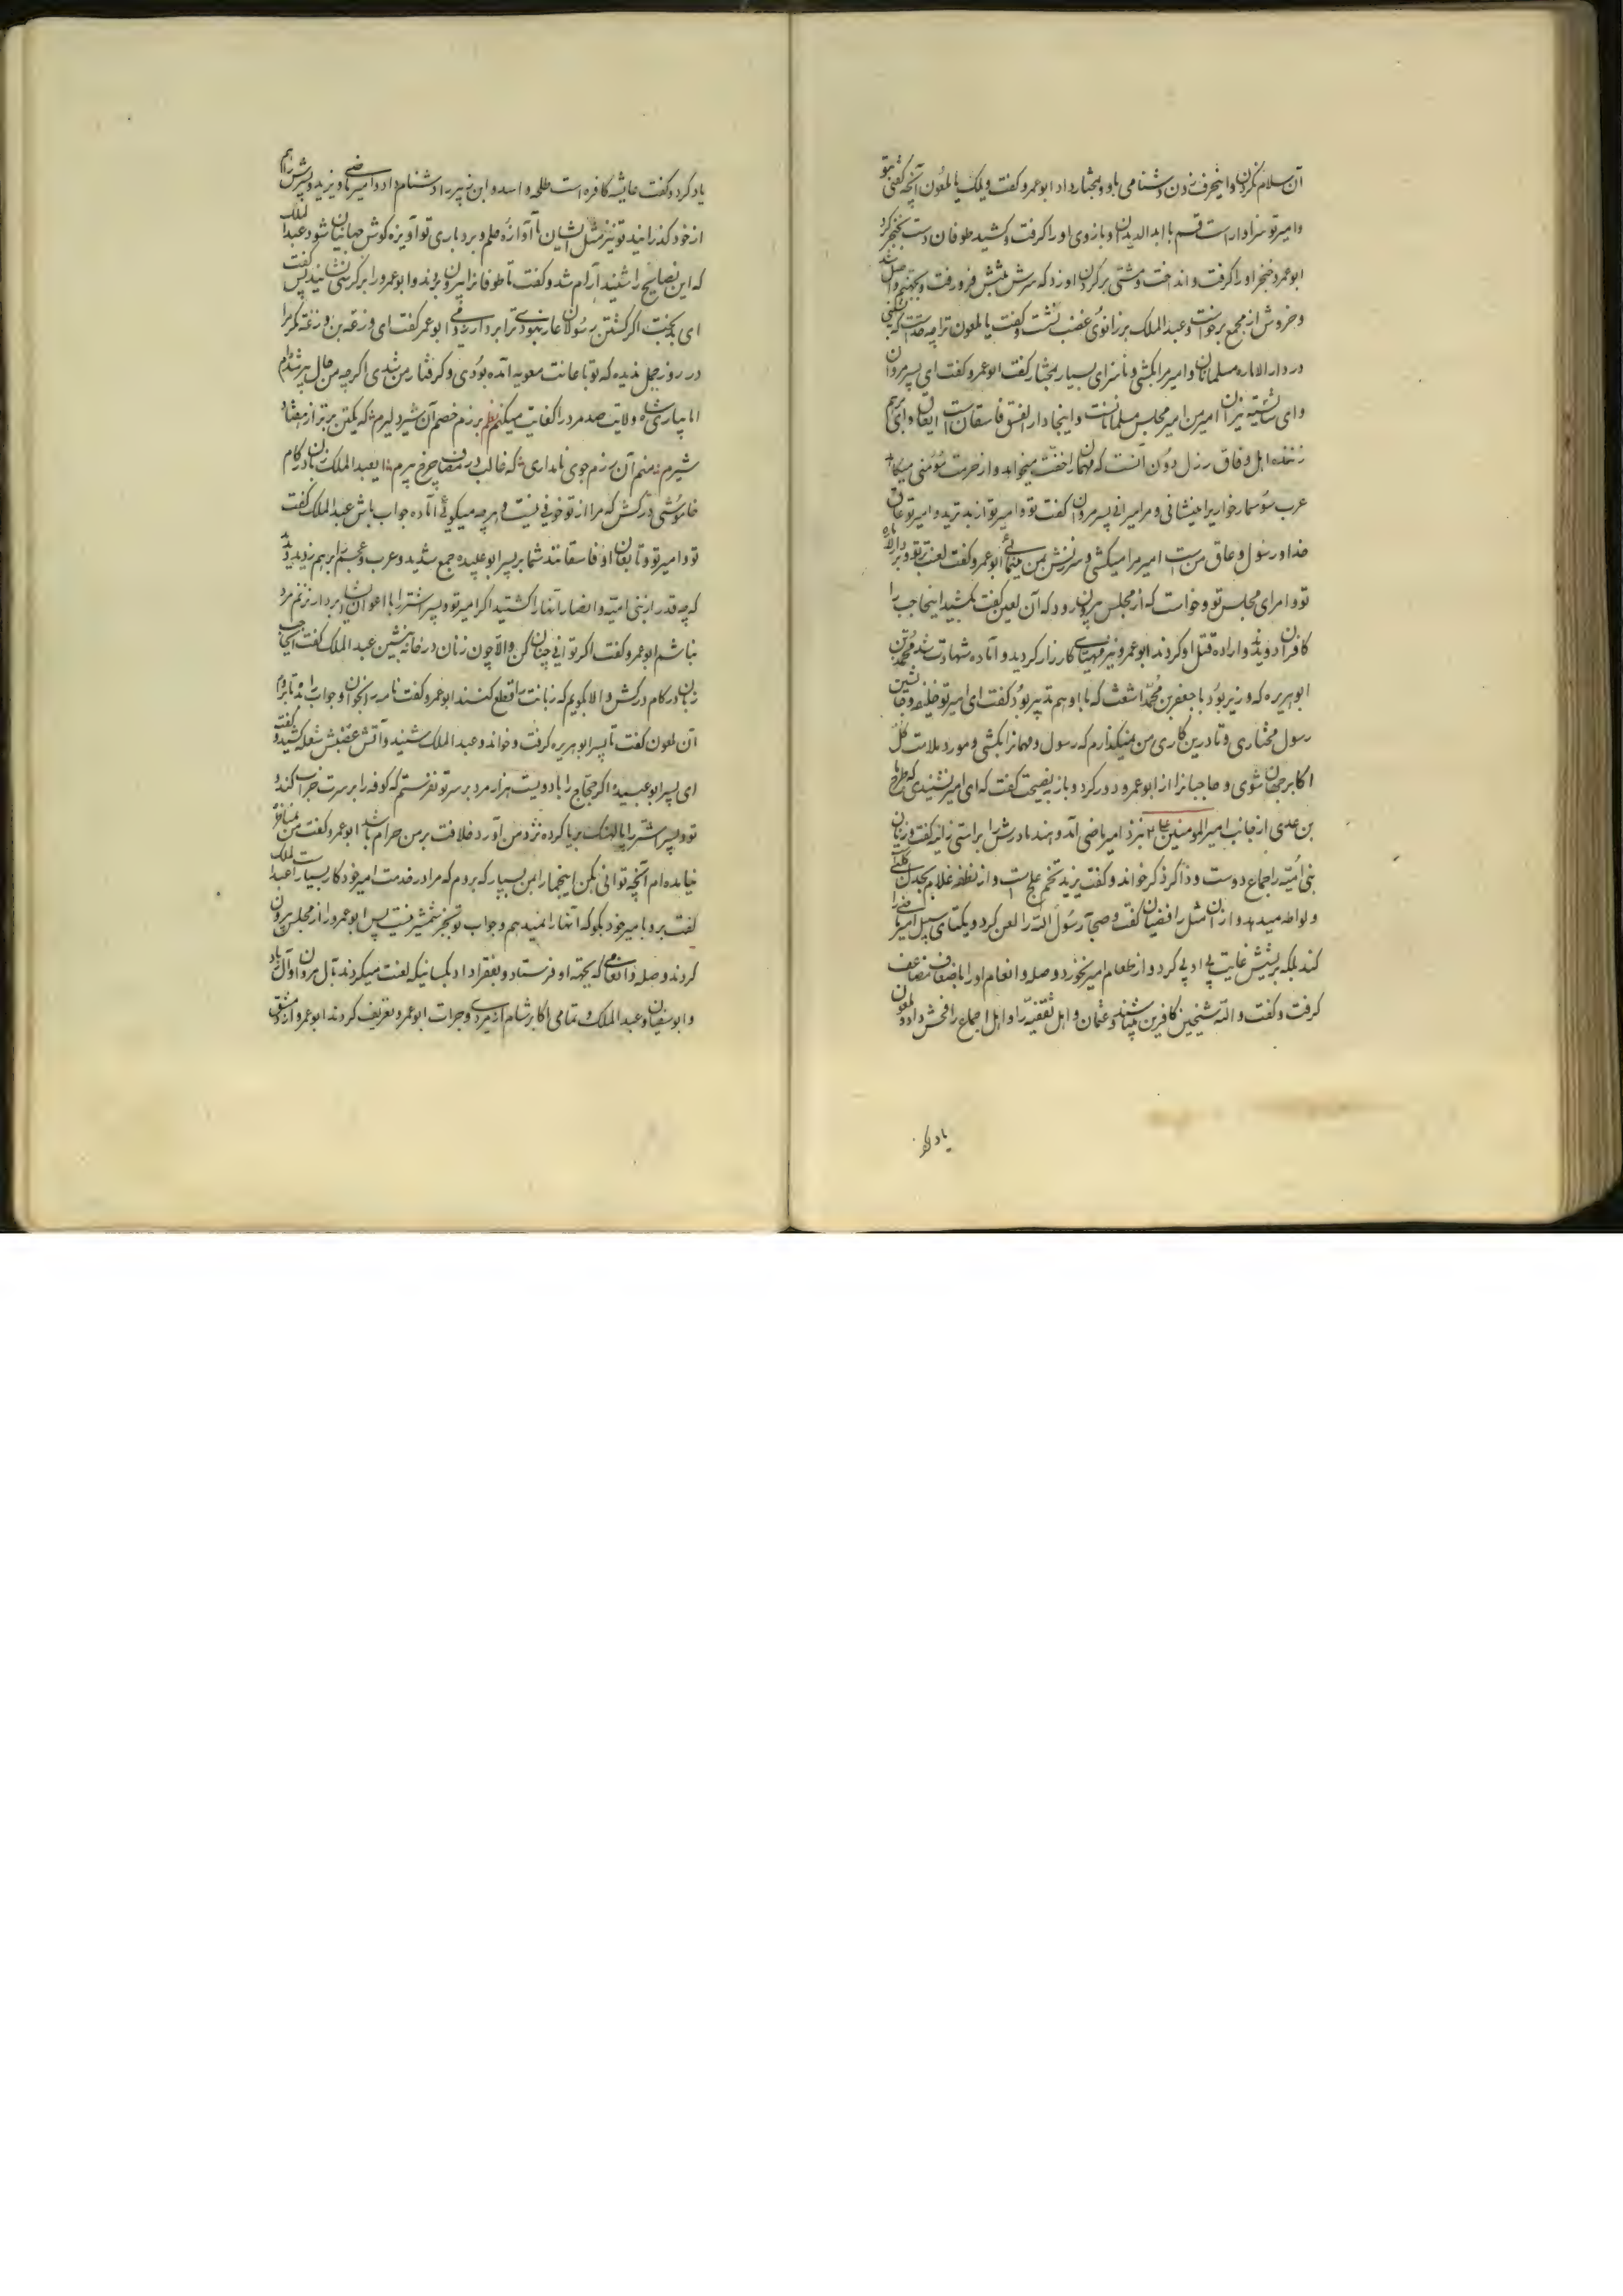 آن سلام نکردن و اینحرف زدن و شنامی باو و بمختار داد ابو عمرو گفت ویلک یا ملعون آنچه گفتی بتو
و امیر تو سزاوار است قسم با ابد الدیدان او بازوی او را گرفت و کشید طوفان دست بخنجر کرد
ابو عمرو خنجر او را گرفت و انداخت و مشتی بر گردن او زد که سرش فرو رفت و بجهنم واصل شد
و خروش از مجمع برخواست و عبد الملک بر زانوی غضب نشست و گفت یا ملعون ترا چه حد است که
در دار الاماره مسلمانان و امیر مرا بکشی و ناسزای بسیار بمختار گفت ابو عمرو گفت ای پسر مروان
امیر من امیر مجلس مسلمانانست و اینجا دار الفسق فاسقان است
اهل وفاق رذل و دون آنست که مهمان را
عرب سوسمار خوار پسر مروان گفت تو و امیر تو از بد ترید و امیر تو عاق
خدا و رسول و عاق من است امیر مرا میکشی و سرزنش بمن مینمائی ابو عمرو گفت لعنت بر تو و بر
تو و امرای مجلس تو و خواست که از مجلس بیرون رود که آن لعین گفت بکشید اینجا حجب را
کافران دویدند و اراده قتل او کردند ابو عمرو نیز مهیای کارزار گردید و آماده شهادت شد محمد بن
ابو هریره که وزیر بود با جعفر بن محمد اشعث که با او هم تدبیر بود گفت ای امیر تو خلیفه و جانشین
رسول مختاری و نادرین کاری من نمیگذارم که رسول و مهمانرا بکشی و مورد ملامت کل
اکابر جهان شوی و حاجبانرا از ابو عمرو دور کرد و باز بنصیحت گفت که ای امیر نشنیدی که طرماح
بن عدی از جانب امیر المومنین ع نزد امیر ماضی آمد و هند مادرش را براستی زانیه گفت و زنان
بنی امیه را جماع دوست و ذاکر ذکر خواند و گفت یزید تخم علج است و از نطفه غلام بجدل کلبی
و لواطه میدهد و از آن مثل رافضیان گفت و صحابه رسول الله را لعن کرد
کند بلکه بریشش غایت بی ادبی کرد و از طعام امیر نخورد و صله و انعام او را باضعاف مضاعف
گرفت و گفت و الله شیخین کافرین میباشند و عثمان و اهل سقیفه را و اهل اجماع را فحش داد و ملعون
یاد کرد
یاد کرد و گفت عایشه کافره است طلحه و اسد و ابن زبیر را دشنام داد و امیر ماضی و یزید و پسرش را هم
از خود گذرانید تو نیز مثل ایشان تا آوازه حلم و بردباری تو آویزه گوش جهانیان شود عبد الملک
که این نصایح را شنید آرام شد و گفت تا طوفانرا بیرون بردند و ابو عمرو را بر کرسی نشانید پس گفت
ای بدبخت اگر کشتن رسولان عار نبودی ترا بردار زدمی ابو عمرو گفت ای وزغه بن وزغه مگر مرا
در روز جمل ندیده که تو با عانت معویه آمده بودی و گرفتار من شدی اگر چه من حال پیر شده‌ام
اما بیاری شاه ولایت صد مرد را کفایت میکنم نظم برزم خصم آن شیر دلیرم که یکتن برتر از هفتاد
شیرم منم آن رزم جوی نامداری که غالب در مصاف چرخ پیرم یا عبد الملک زبان در کام
خاموشی درکش که مرا از تو خوفی نیست و هر چه میگوئی آماده جواب باش عبد الملک گفت
تو و امیر تو و تابعان او فاسقانند شما بر پسر ابو عبیده جمع شدید و عرب و عجم را برهم زدید
که چه قدر از بنی امیه و انصار آنها را کشتید اگر امیر تو و پسر اشتر را با اعوانشان بردار نزنم مرد
نباشم ابو عمرو گفت اگر توانی چنان کن و الا چون زنان در خانه بنشین عبد الملک گفت
زبان در کام درکش و الا بگویم که زبانت را قطع کنند ابو عمرو گفت نامه را بخوان و جواب را بده تا بروم
آن ملعون گفت تا پسر ابو هریره گرفت و خواند و عبد الملک شنید و آتش غضبش شعله کشید و گفت
ای پسر ابو عبیده اگر حجاج را با دویست هزار مرد بر سر تو نفرستم که کوفه را بر سرت خراب کند و
تو و پسر اشتر را پالهنک برپا کرده نزد من آورد خلافت بر من حرام باشد ابو عمرو گفت من بمناظره
نیامده‌ام آنچه توانی بکن اینجا را بمن بسپار که بروم که مرا در خدمت امیر خود کار بسیار است عبد الملک
گفت برو با میر خود بگو که آنها را نمیدهم و جواب تو بجز شمشیر نیست پس ابو عمرو را از مجلس بیرون
کردند و صله و انعامی که بجهته او فرستاد و بفقرا داد بکسانیکه لعنت میکردند بآل مروان و آل زیاد
و ابو سفیان و عبد الملک و تمامی اکابر شام از مردی و جرات ابو عمرو تعریف کردند ابو عمرو از دمشق